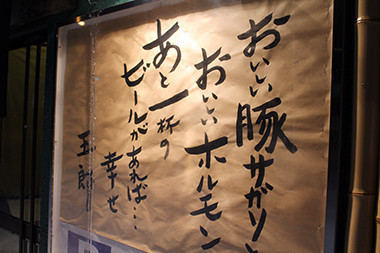 おいしい豚サガリと
おいしいホルモン
あと一杯の
ビールがあれば…
幸せ
五郎